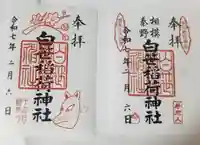 奉拝
白笹稲荷神社
令和七年二月六日
奉拝
相模
秦野
白笹稲荷神社
令和七年二月六日